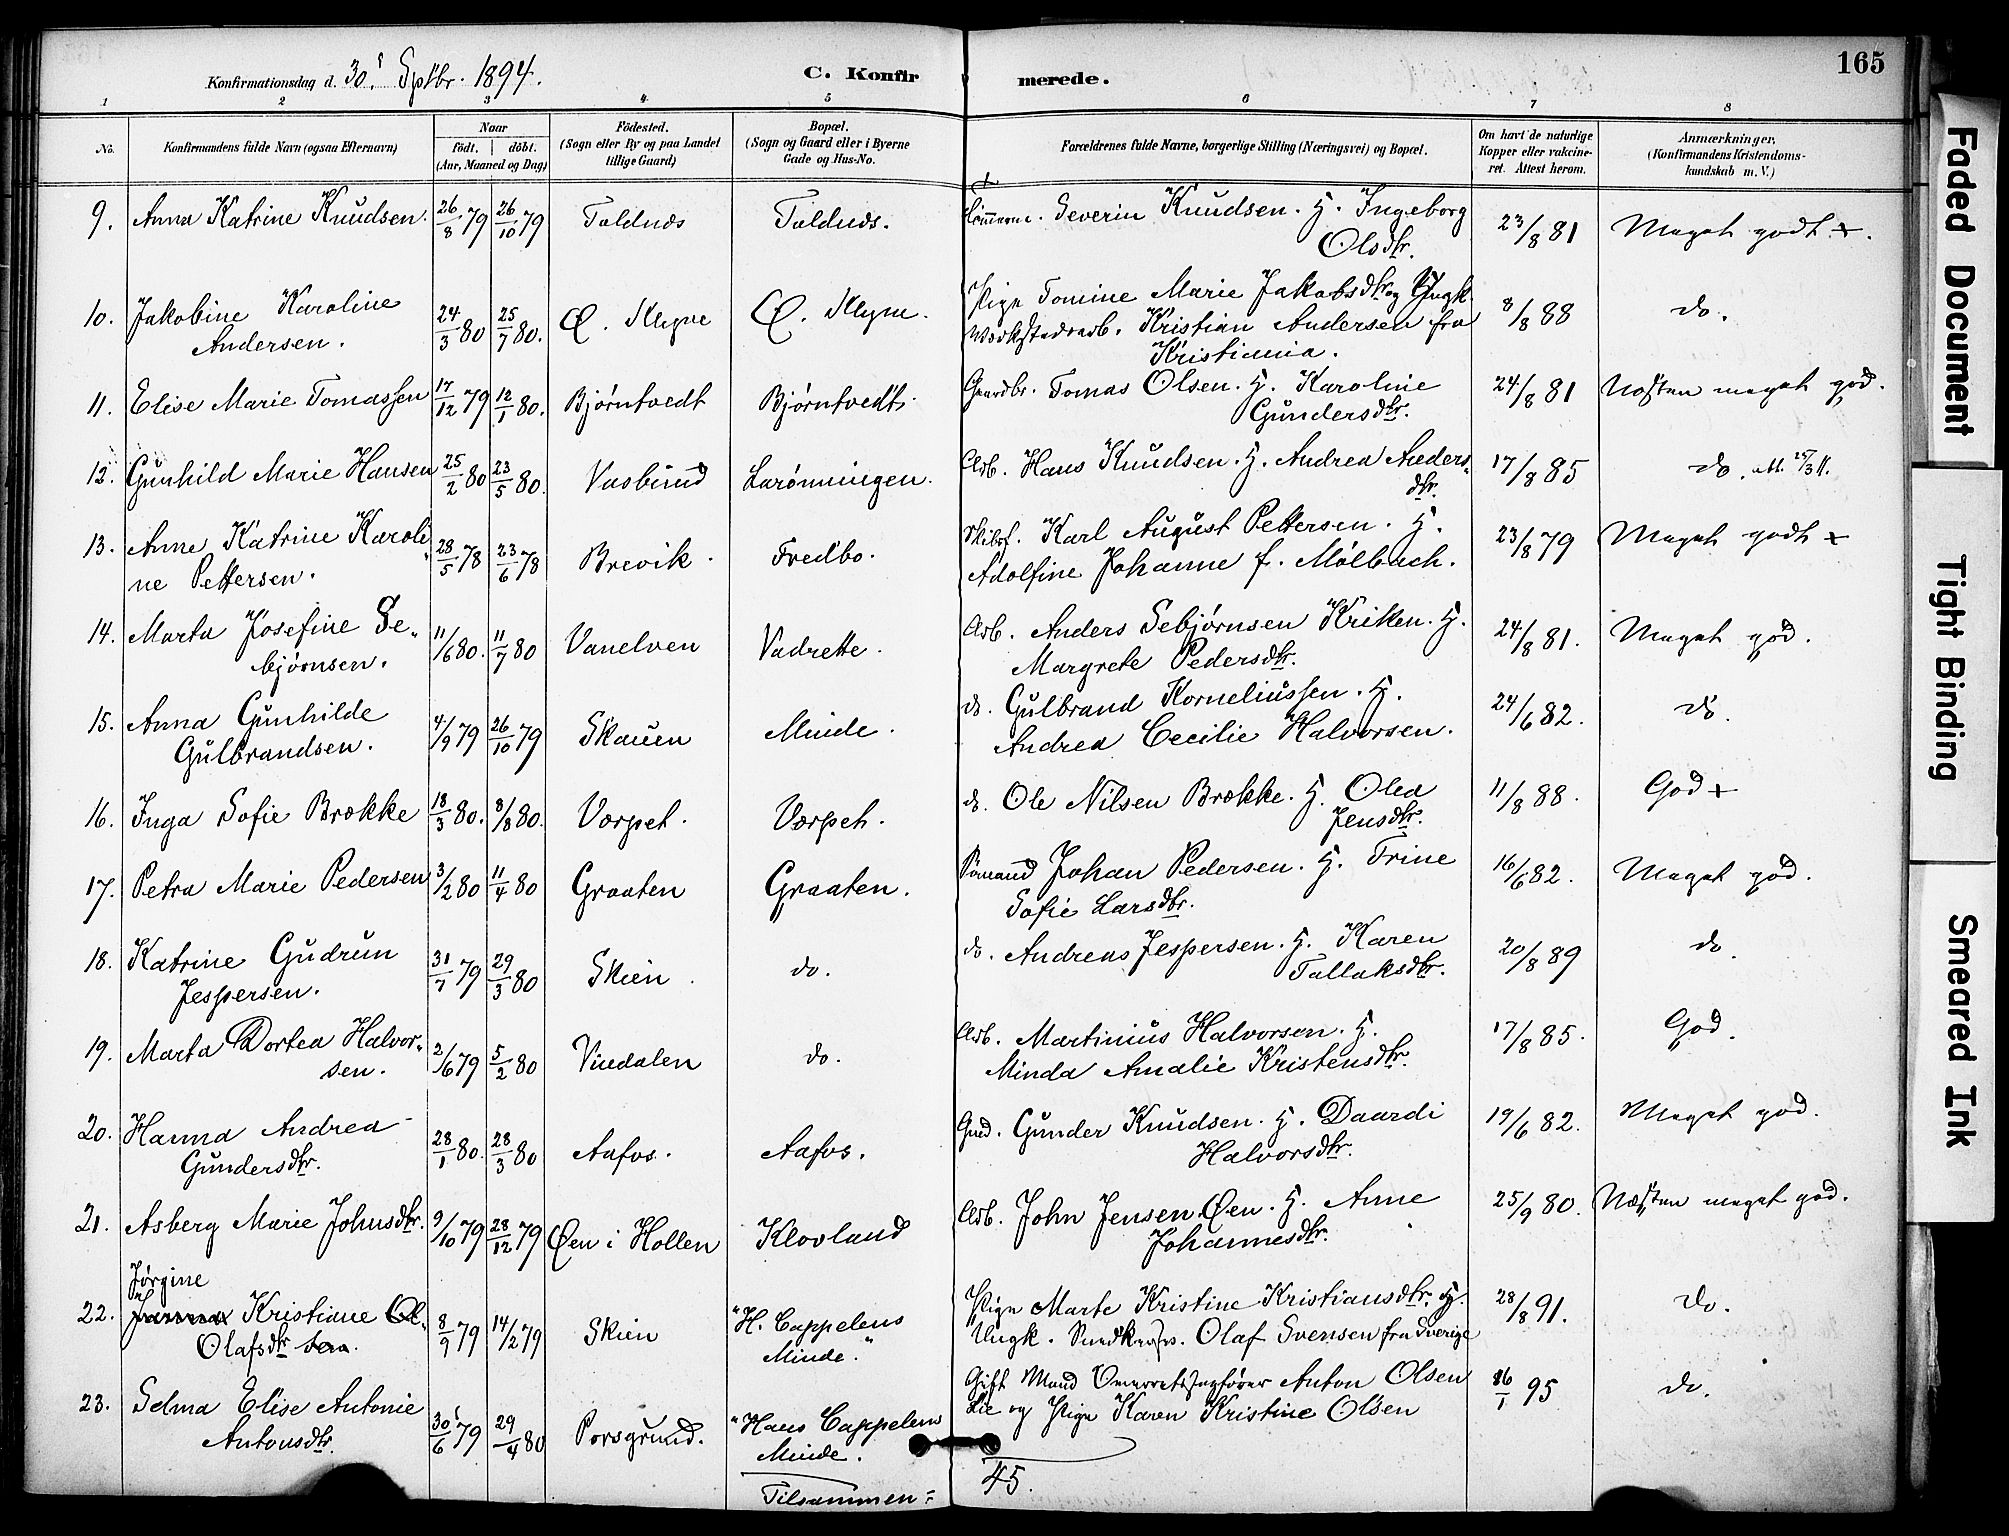 165
Konfirmationsdag d. 30. Sptbr. 1894.
C. Konfirmerede.
1 2 3 4 5 6 7 8
No.
Konfirmandens fulde Navn (ogsaa Efternavn)
Naar
födt. döbt.
(Aar, Maaned og Dag)
Födested.
(Sogn eller By og paa Landet
tillige Gaard)
Bopæl.
(Sogn og Gaard eller i Byerne
Gade og Hus-No.
Forældrenes fulde Navne, borgerlige Stilling (Næringsvei) og Bopæl.
Om havt de naturlige
Kopper eller vakcine-
ret. Attest herom.
Anmærkninger.
(Konfirmandens Kristendoms-
kundskab m. V.)
9. Anna Katrine Knudsen. 26/8 79 26/10 79 Faldnes Faldnes. Severin Knudsen. H. Ingeborg 23/8 81 Meget godt +.
Olsdtr.
10. Jakobine Karoline 24/3 80 25/7 80. Ø. Klyve Ø. Klyve. Pige Tomine Marie Jakobsdtr. og Ungk. 8/8 88 do.
Andersen. Værkstedsarb. Kristian Andersen fra
Kristiania.
11. Elise Marie Tomassen 17/12 79 12/1 80. Bjørntvedt Bjørntvedt. Gaardbr. Tomas Olsen. H. Karoline 24/8 81 Næsten meget god.
Gundersdtr.
12. Gunhild Marie Hansen 25/2 80 23/5 80. Vasbund Larønningen. Arb. Hans Knudsen. H. Andrea Anders- 17/8 85 do.
dtr.
13. Anne Katrine Karoli- 28/5 78 23/6 78 Brevik. Fredbo. Skibsf. Karl August Pettersen. H. 23/8 79 Meget godt +
ne Pettersen. Adolfine Johanne f. Mølbach.
14. Marta Josefine Se- 11/6 80. 11/7 80 Vanelven Vadrette. Arb. Anders Sebjørnsen Kriken. H. 24/8 81. Meget god.
bjørnsen. Margrete Pedersdtr.
15. Anna Gunhilde 4/9 79 26/10 79 Skauen Minde. do. Gulbrand Korneliussen. H. 24/6 82. do.
Gulbrandsen. Andrea Cecilie Halvorsen.
16. Inga Sofie Brække 18/3 80. 8/8 80. Vorpet. Vorpet. do. Ole Nilsen Brække. H. Olea 11/8 88. God +
Jensdtr.
17. Petra Marie Pedersen 3/2 80 11/4 80 Graaten Graaten. Sømand Johan Pedersen. H. Trine 16/6 82. Meget god.
Sofie Larsdtr.
18. Katrine Gudrun 31/7 79 29/3 80 Skien. do. do. Andreas Jespersen. H. Karen 20/8 89 do
Jespersen. Tallaksdtr.
19. Marta Dortea Halvor- 2/6 79 5/2 80 Vinedalen do. Arb. Martinius Halvorsen. H. 17/8 85. God.
sen. Minda Amalie Kristensdtr.
20. Hanna Andrea 28/1 80. 28/3 80 Aafos. Aafos. Gaard. Gunder Knudsen. H. Daardi 19/6 82. Meget god.
Gundersdtr. Halvorsdtr.
21. Asberg Marie Johnsdtr. 9/10 79 28/12 79 Øen i Hollen Klovland Arb. John Jensen Øen. H. Anne 25/9 80. Næsten meget god.
Johannesdtr.
Jørgine
22. Kristiane Ol- 8/1 79 14/2 79 Skien "H. Cappelens Pige Marte Kristine Kristiansdtr. og 28/8 91. do.
Olafsdtr sen. Minde." Ungk. Olaf Svensen fra Sverige
23. Selma Elise Antonie 30/6 79 29/4 80 Porsgrund. "Hans Cappelens Gift Mand Anton Olsen 16/1 95 do.
Antonsdtr. Minde. Lie og Pige Karen Kristine Olsen
Tilsammen = 45.
Faded Document
Tight Binding
Smeared Ink